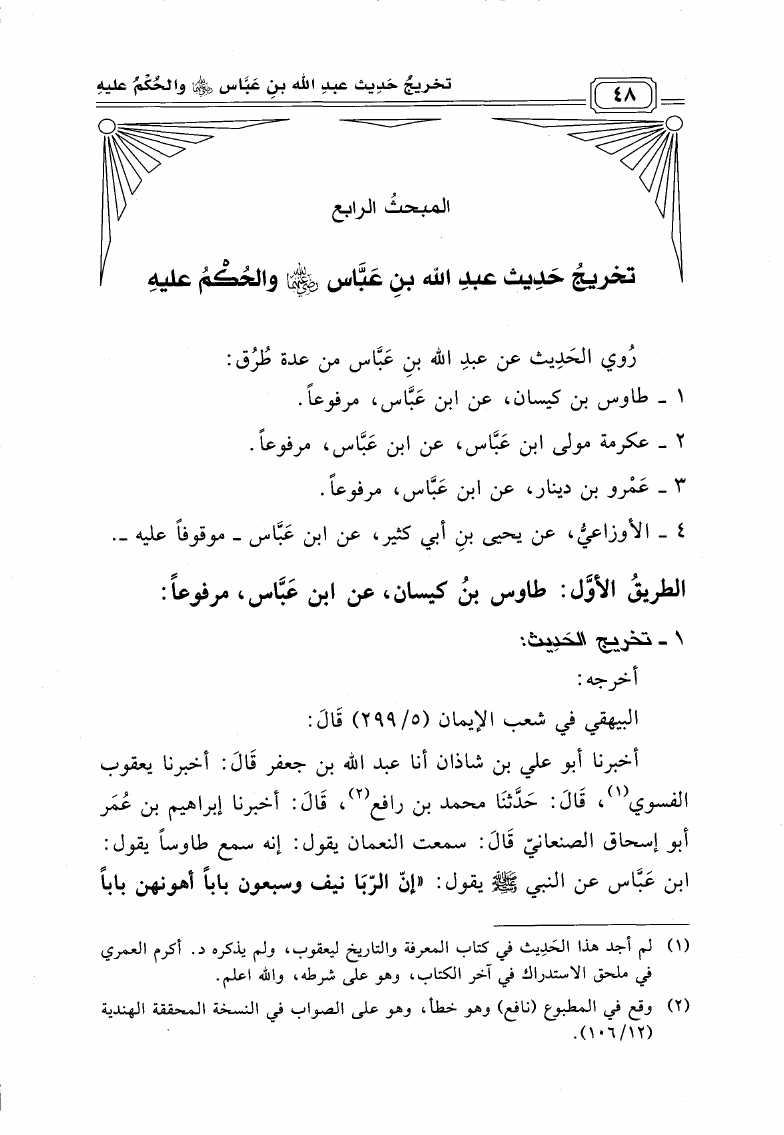 ٤٨
تخريجُ حَدِيث عبدِ الله بنِ عَبَّاس رضي الله عنهما والحُكْمُ عليهِ
المبحثُ الرابع
تخريجُ حَدِيث عبدِ الله بنِ عَبَّاس رضي الله عنهما والحُكْمُ عليهِ
رُوي الحَدِيث عن عبدِ الله بنِ عَبَّاس من عدة طُرُق:
١ ـ طاوس بن كيسان، عن ابن عَبَّاس، مرفوعاً.
٢ ـ عكرمة مولى ابن عَبَّاس، عن ابن عَبَّاس، مرفوعاً.
٣ ـ عَمْرو بن دينار، عن ابن عَبَّاس، مرفوعاً.
٤ ـ الأوزاعيُّ، عن يحيى بنِ أبي كثير، عن ابن عَبَّاس ـ موقوفاً عليه ـ.
الطريقُ الأوَّل: طاوس بنُ كيسان، عن ابن عَبَّاس، مرفوعاً:
١ ـ تخريج الحَدِيث:
أخرجه:
البيهقي في شعب الإيمان (٢٩٩/٥) قَالَ:
أخبرنا أبو علي بن شاذان أنا عبد الله بن جعفر قَالَ: أخبرنا يعقوب
الفسوي(١)، قَالَ: حَدَّثَنَا محمد بن رافع(٢)، قَالَ: أخبرنا إبراهيم بن عُمَر
أبو إسحاق الصنعانيّ قَالَ: سمعت النعمان يقول: إنه سمع طاوساً يقول:
ابن عَبَّاس عن النبي ﷺ يقول: «إنّ الرّبَا نيف وسبعون باباً أهونهن باباً
(١) لم أجد هذا الحَدِيث في كتاب المعرفة والتاريخ ليعقوب، ولم يذكره د. أكرم العمري
في ملحق الاستدراك في آخر الكتاب، وهو على شرطه، والله اعلم.
(٢) وقع في المطبوع (نافع) وهو خطأ، وهو على الصواب في النسخة المحققة الهندية
(١٠٦/١٢).